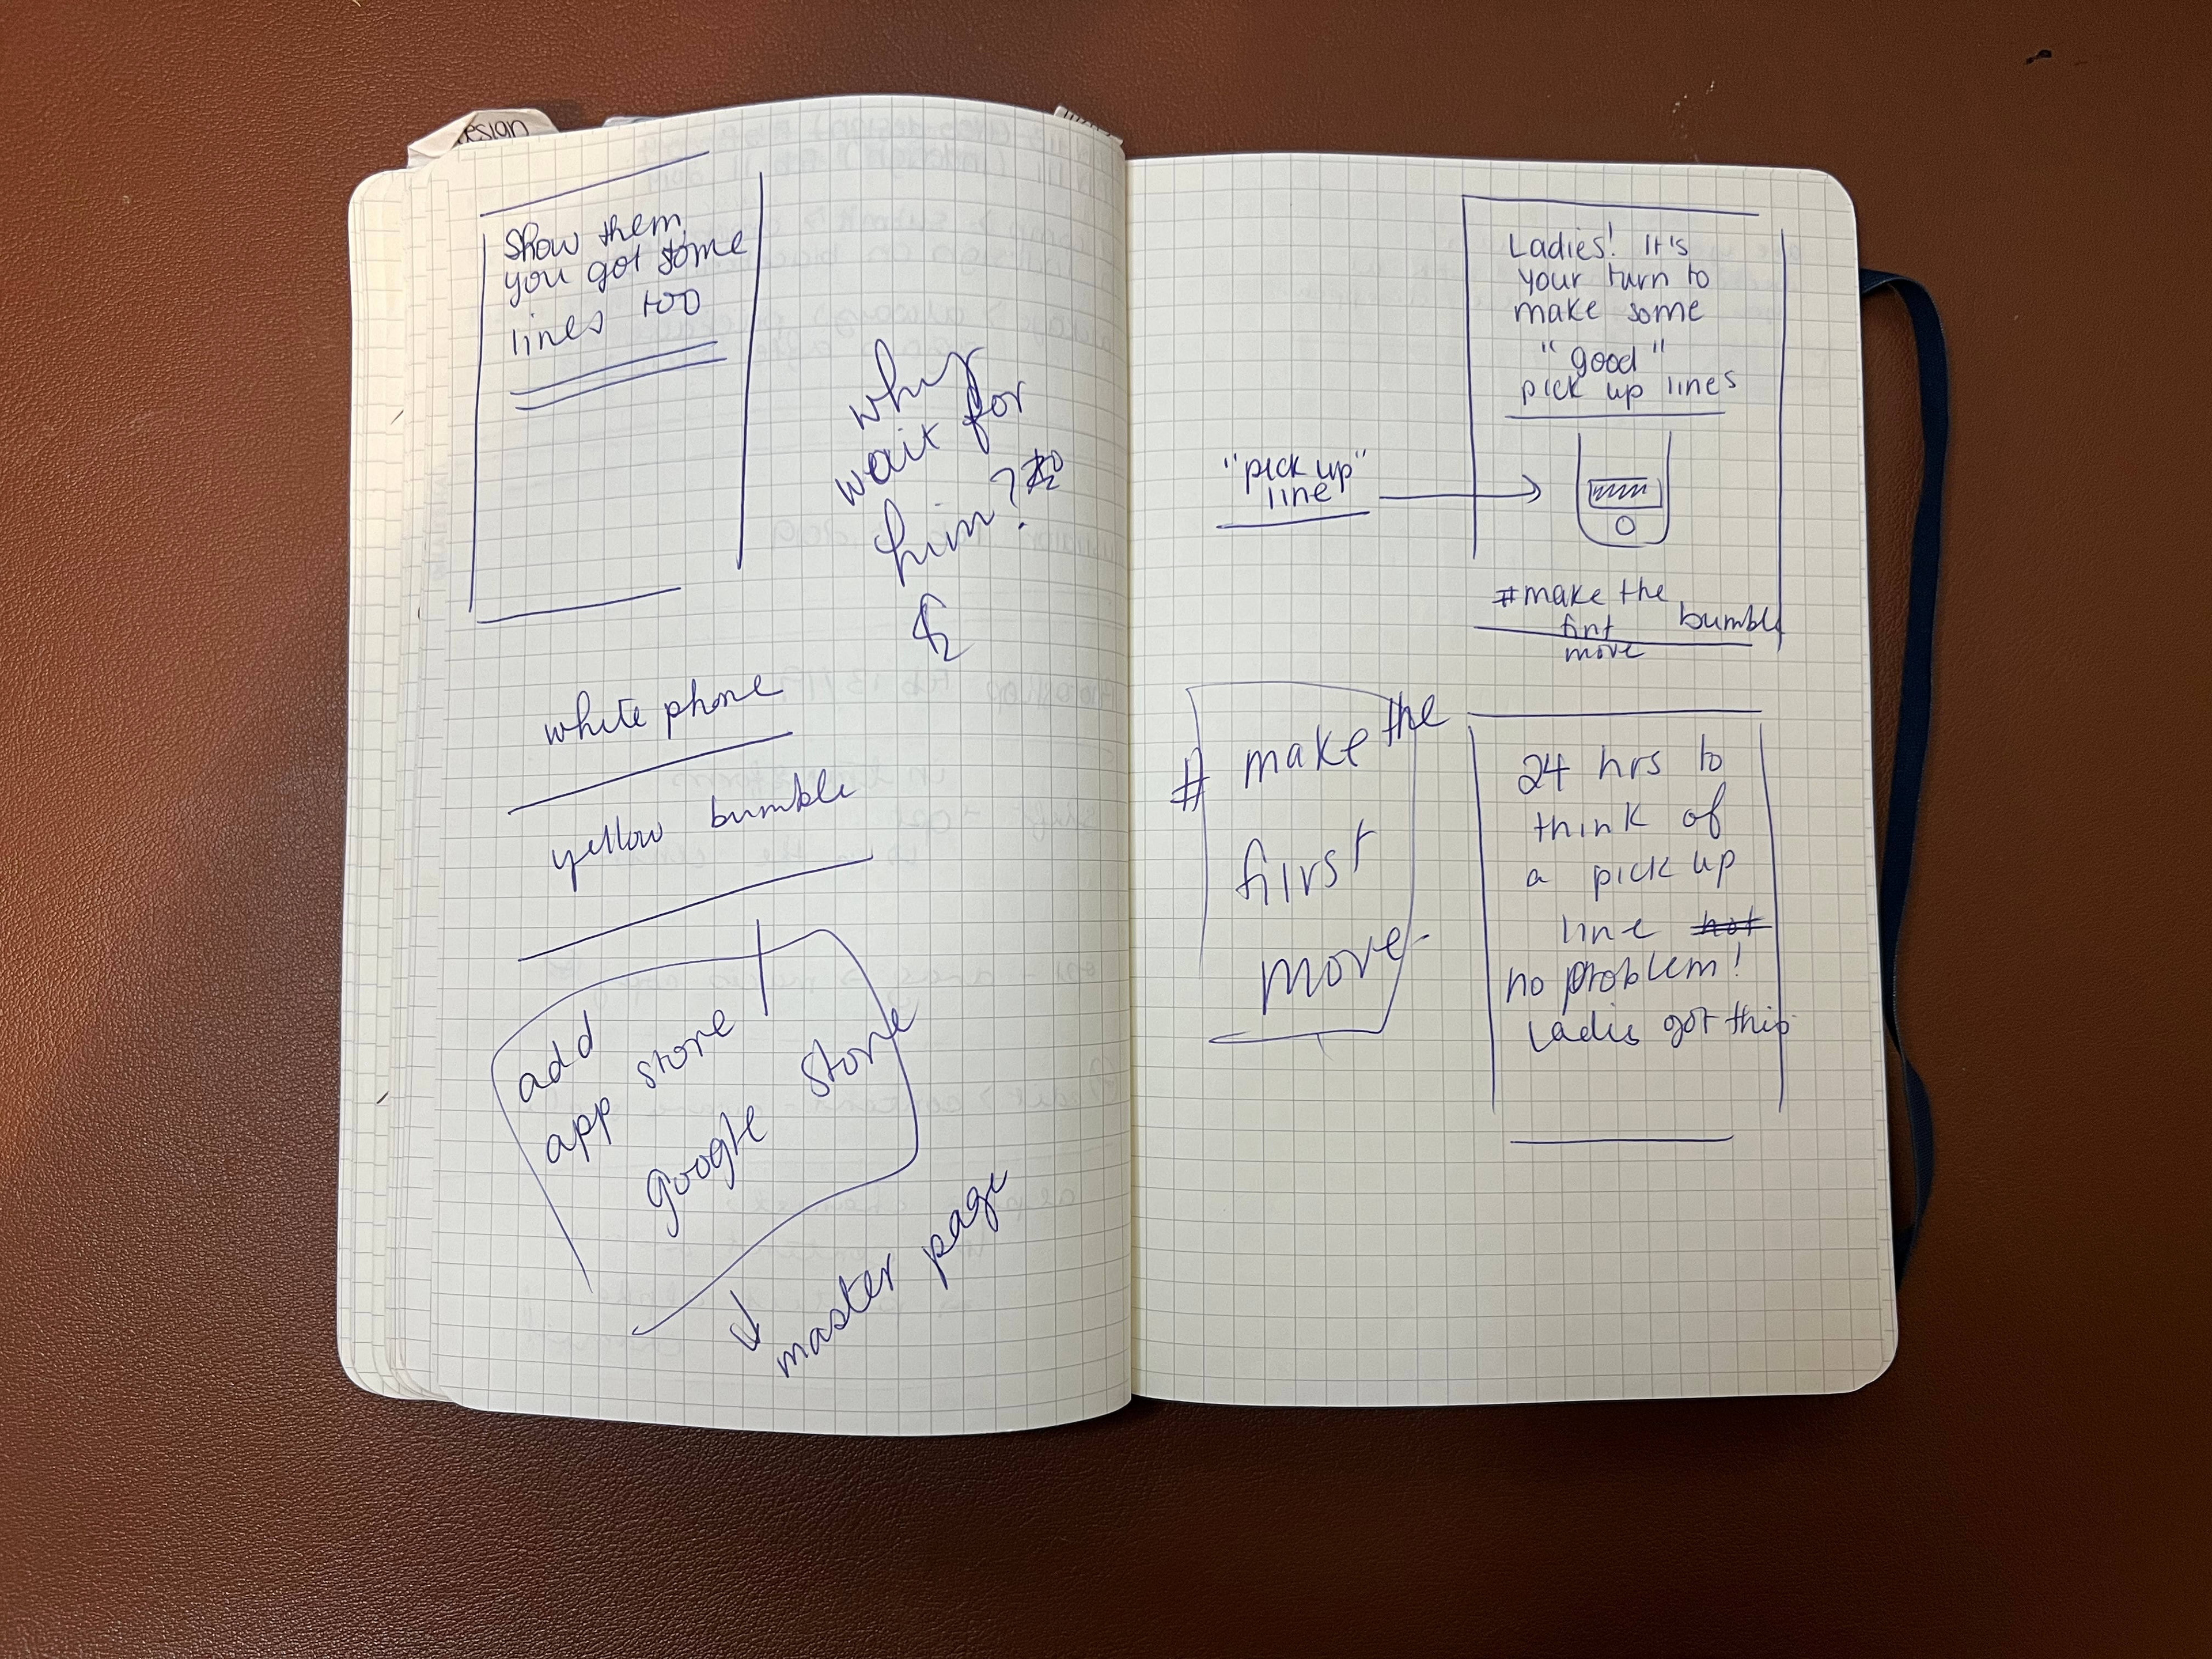 esign
Show them
you got some
lines too
why
wait for
him?
white phone
yellow bumble
add
app store
google store
master page
Ladies! It's
your turn to
make some
"good"
pick up lines
"pick up"
line
#make the
first
move
bumble
# make the
first
move
24 hrs to
think of
a pick up
line hot
no problem!
Ladies got this